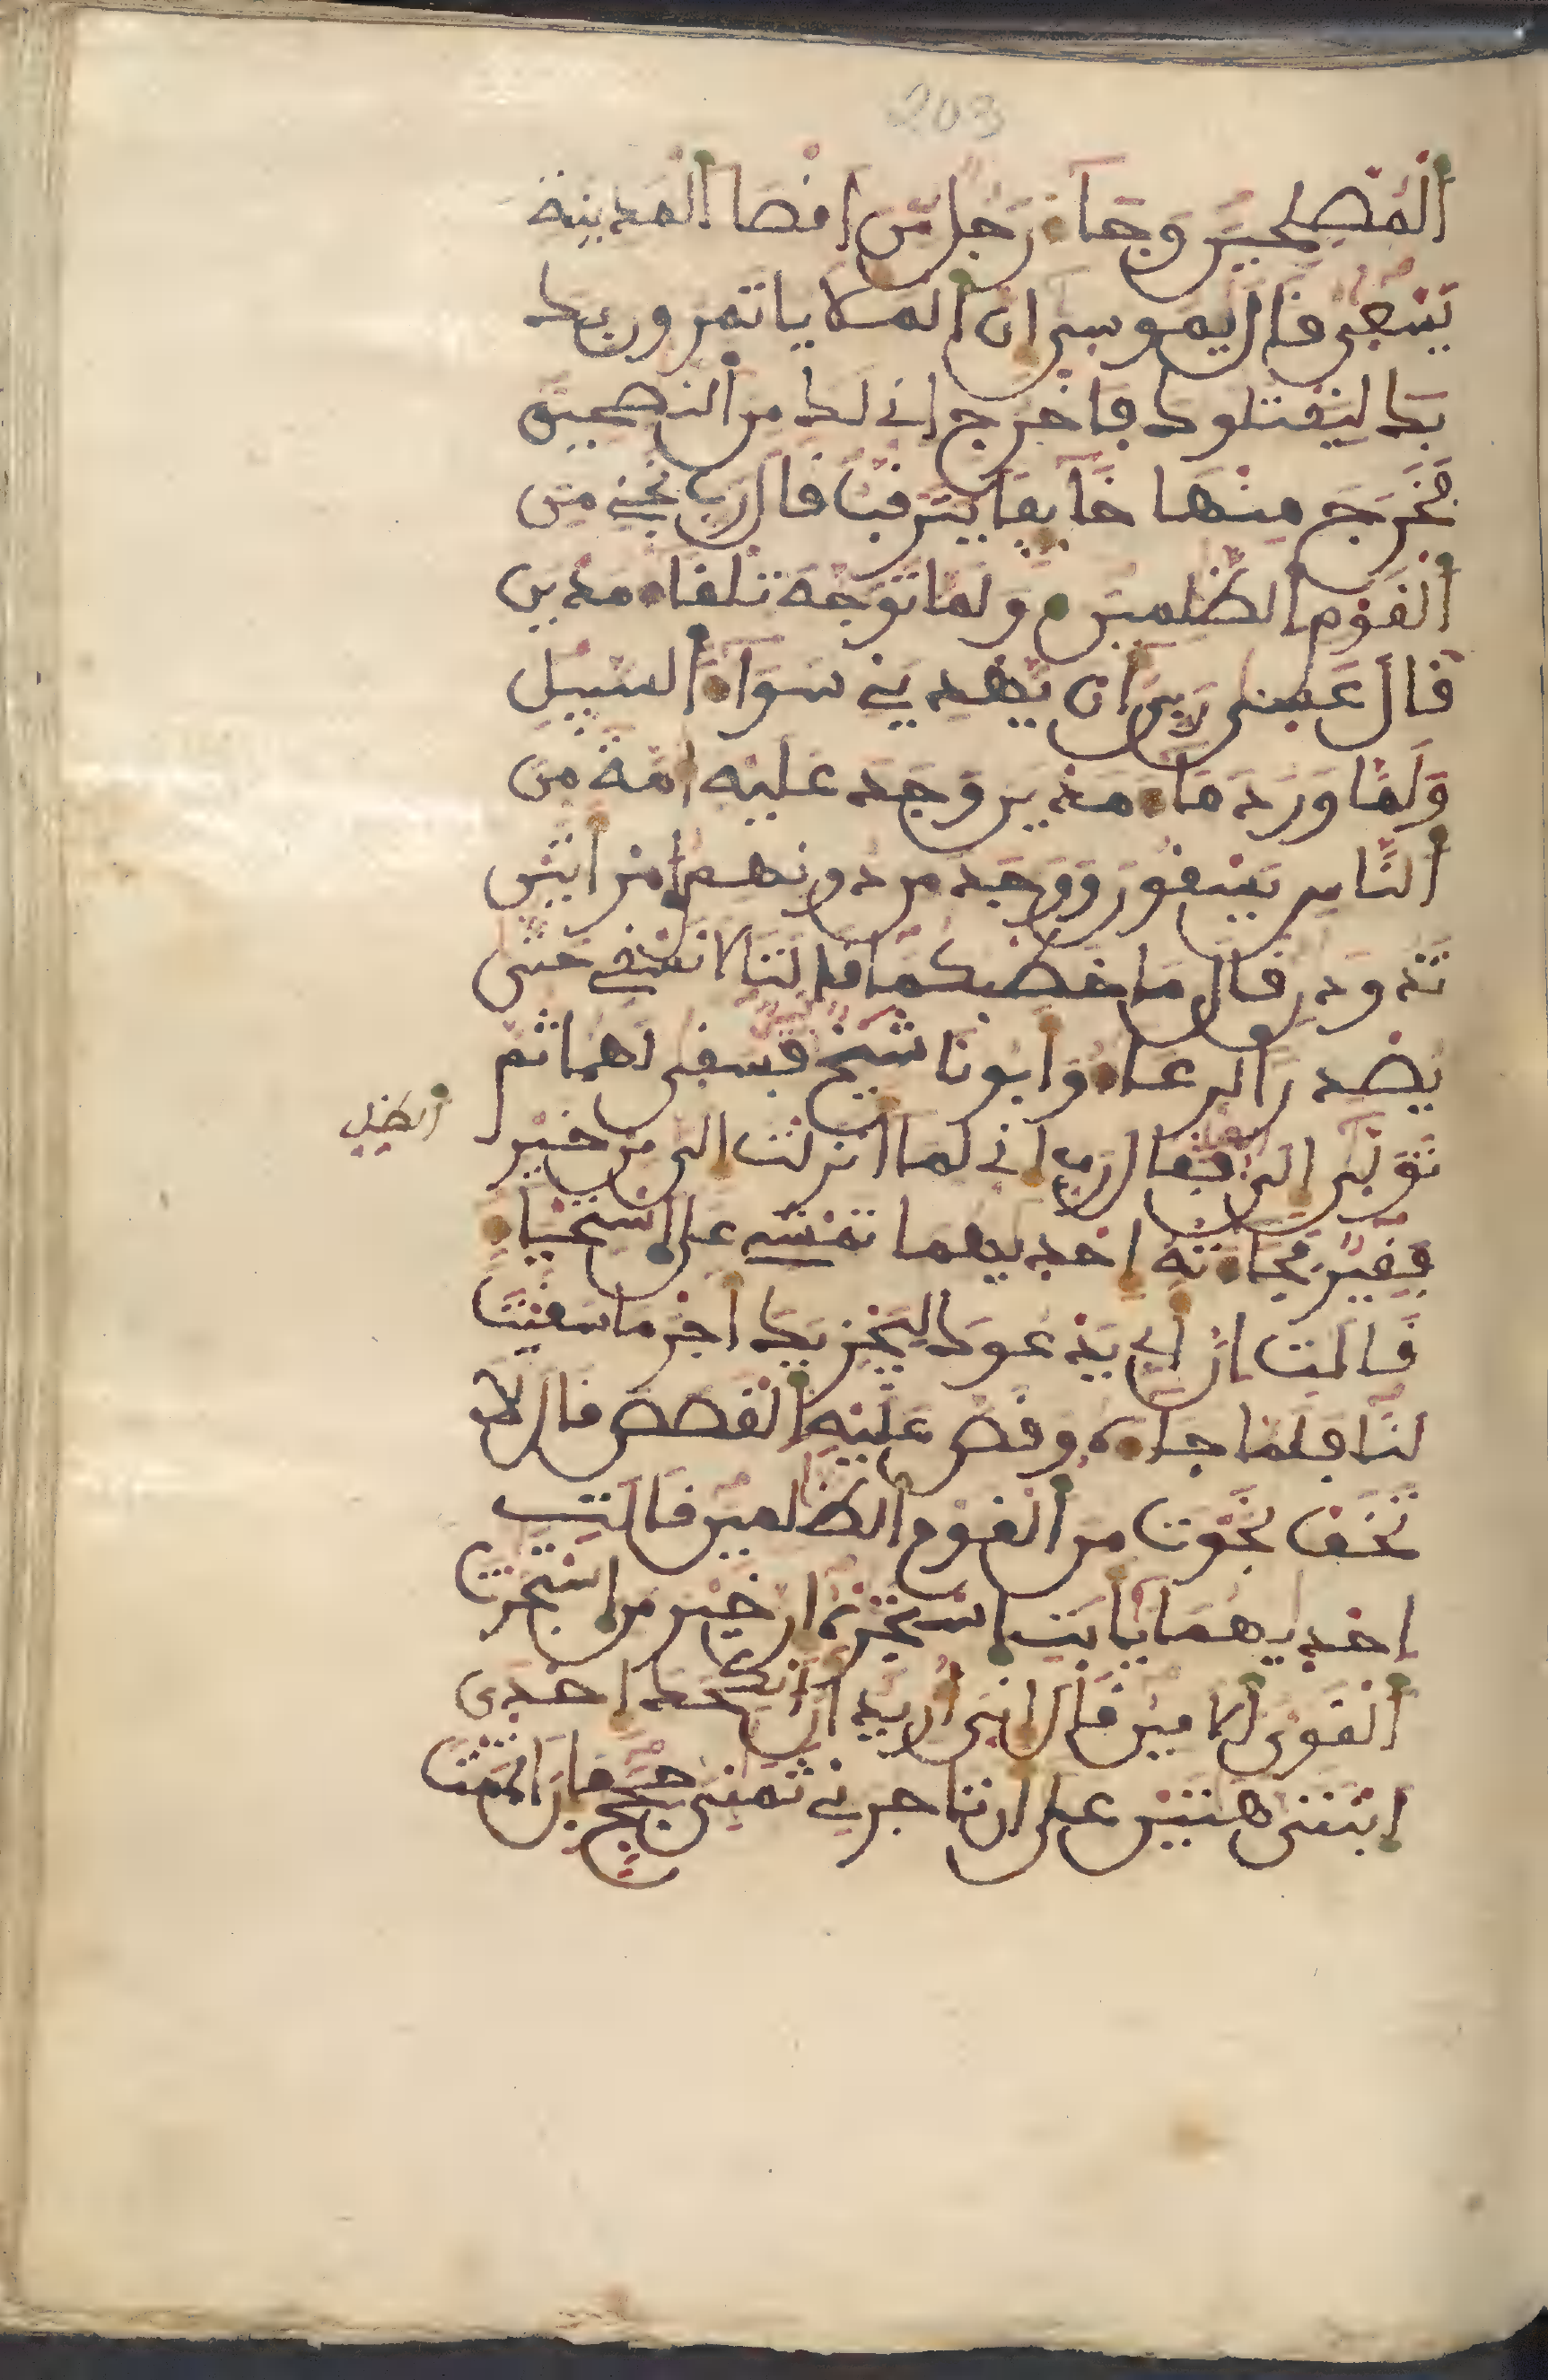 203
ٱلْمُصْلِحِينَ وَجَآءَ رَجُلٌ مِّنَ اَقْصَا ٱلْمَدِينَةِ
يَسْعَى قَالَ يَمُوسَى إِنَّ ٱلْمَلَأَ يَاتَمِرُونَ بِكَ
بِكَ لِيَقْتُلُوكَ فَاخْرُجِ انِّے لَكَ مِنَ ٱلنَّصِحِينَ
فَخَرَجَ مِنْهَا خَآئِفًا يَتَرَقَّبُ قَالَ رَبِّ نَجِّنِے مِنَ
ٱلْقَوْمِ ٱلظَّلِمِينَ وَلَمَّا تَوَجَّهَ تِلْقَآءَ مَدْيَنَ
قَالَ عَسَى رَبِّىَ أَنْ يَّهْدِيَنِے سَوَآءَ ٱلسَّبِيلِ
وَلَمَّا وَرَدَ مَآءَ مَدْيَنَ وَجَدَ عَلَيْهِ أُمَّةً مِّنَ
ٱلنَّاسِ يَسْقُونَ وَوَجَدَ مِن دُونِهِمُ ٱمْرَأَتَيْنِ
تَذُودَنِ قَالَ مَا خَطْبُكُمَا قَالَتَا لَا نَسْقِے حَتَّى
يُصْدِرَ ٱلرِّعَآءُ وَأَبُونَا شَيْخٌ كَبِيرٌ فَسَقَى لَهُمَا ثُمَّ
تَوَلَّى إِلَى فَقَالَ رَبِّ إِنِّے لِمَا أَنزَلْتَ إِلَىَّ مِنْ خَيْرٍ
ٱلظِّلِّ
فَقِيرٌ فَجَآءَتْهُ إِحْدَيهُمَا تَمْشِے عَلَى ٱسْتِحْيَآءٍ
قَالَتِ انَّ أَبِے يَدْعُوكَ لِيَجْزِيَكَ أَجْرَ مَا سَقَيْتَ
لَنَا فَلَمَّا جَآءَهُ وَقَصَّ عَلَيْهِ ٱلْقَصَصَ قَالَ لَا
تَخَفْ نَجَوْتَ مِنَ ٱلْقَوْمِ ٱلظَّلِمِينَ قَالَتِ
احْدَيهُمَا يَأَبَتِ ٱسْتَجِرْهُ إِنَّ خَيْرَ مَنِ ٱسْتَجَرْتَ
ٱلْقَوِىُّ ٱلَامِينُ قَالَ إِنِّىَ أُرِيدُ أَنُ انكِحَكَ إِحْدَى
ابْنَتَىَّ هَتَيْنِ عَلَى أَن تَاجُرَنِے ثَمَنِىَ حِجَجٍ فَإِنَ اتْمَمْتَ